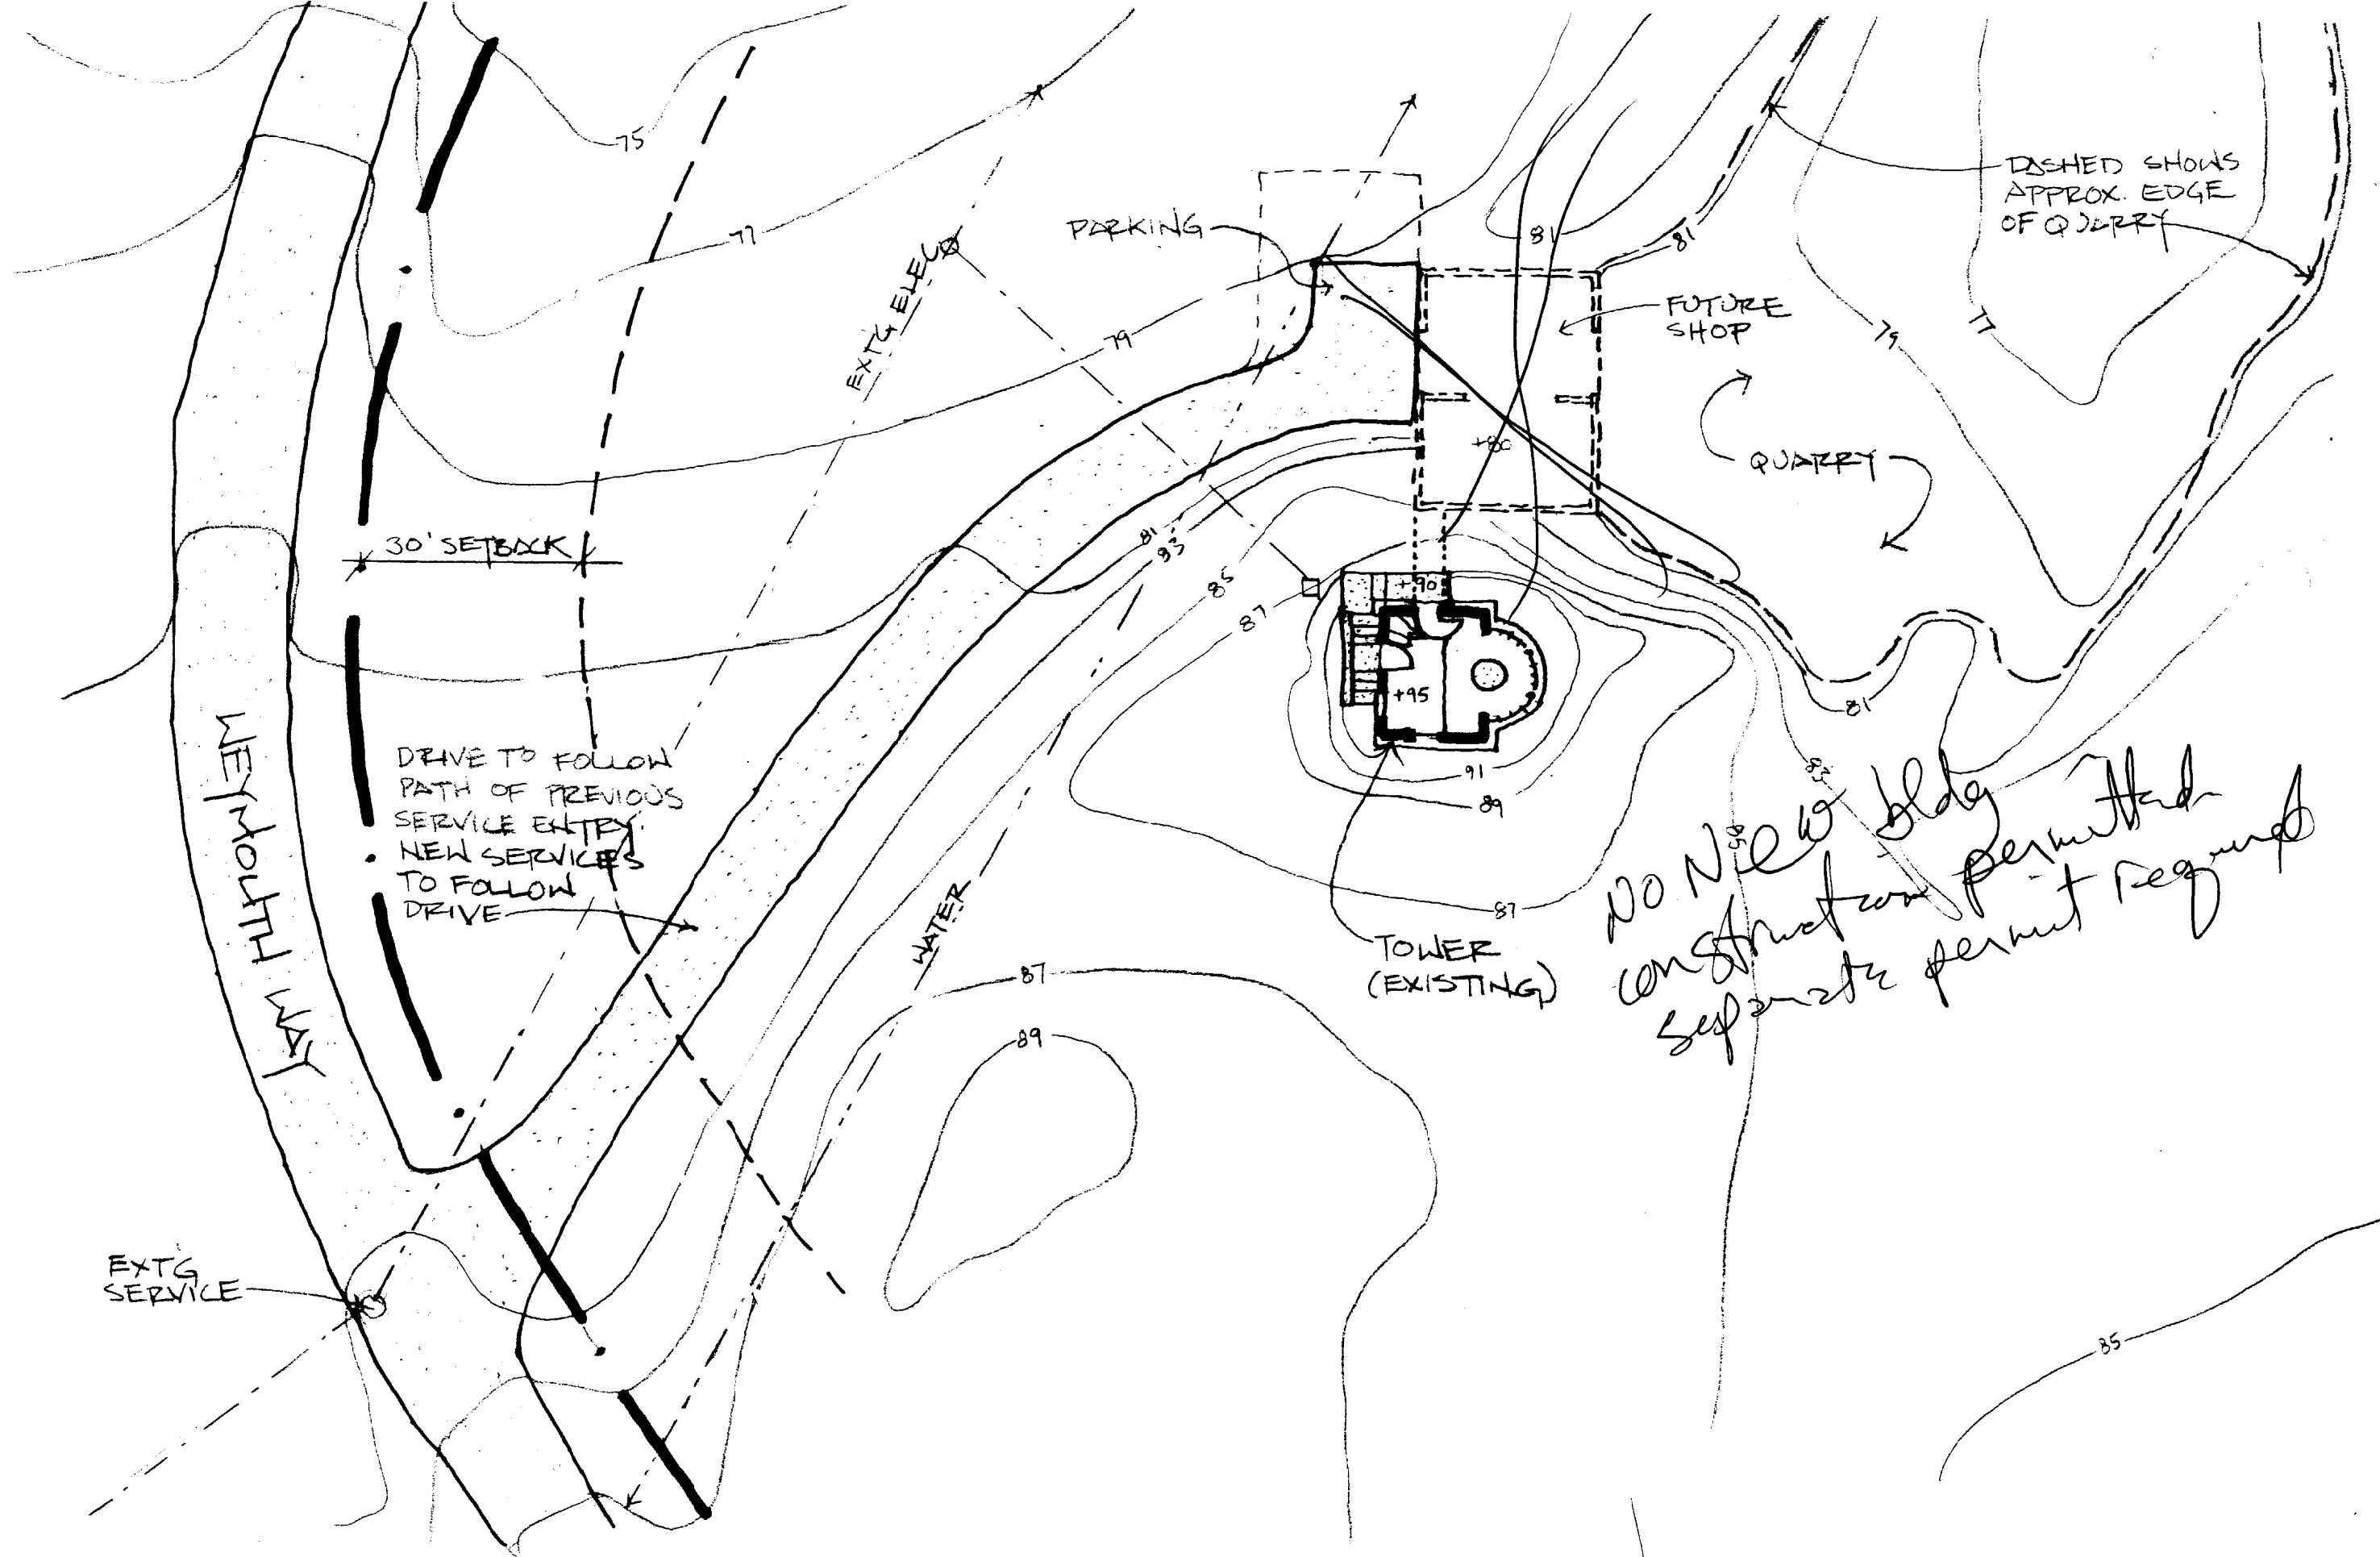 75
77
PARKING
81
81
DASHED SHOWS
APPROX. EDGE
OF QUARRY
EXT'G ELEV
79
FUTURE
SHOP
79
77
+80
QUARRY
30' SETBACK
81
83
85
87
+90
+95
81
WEYMOUTH WAY
DRIVE TO FOLLOW
PATH OF PREVIOUS
SERVICE ENTRY.
NEW SERVICES
TO FOLLOW
DRIVE
91
89
83
85
87
WATER
TOWER
(EXISTING)
No New bldg
construction permitted
separate permit required
87
89
EXT'G
SERVICE
85